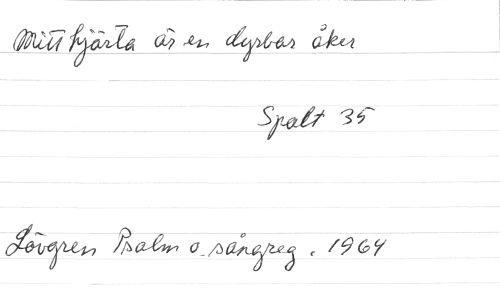 Mitt hjärta är en dyrbar åker
Spalt 35
Lövgren Psalm o. sångreg. 1964